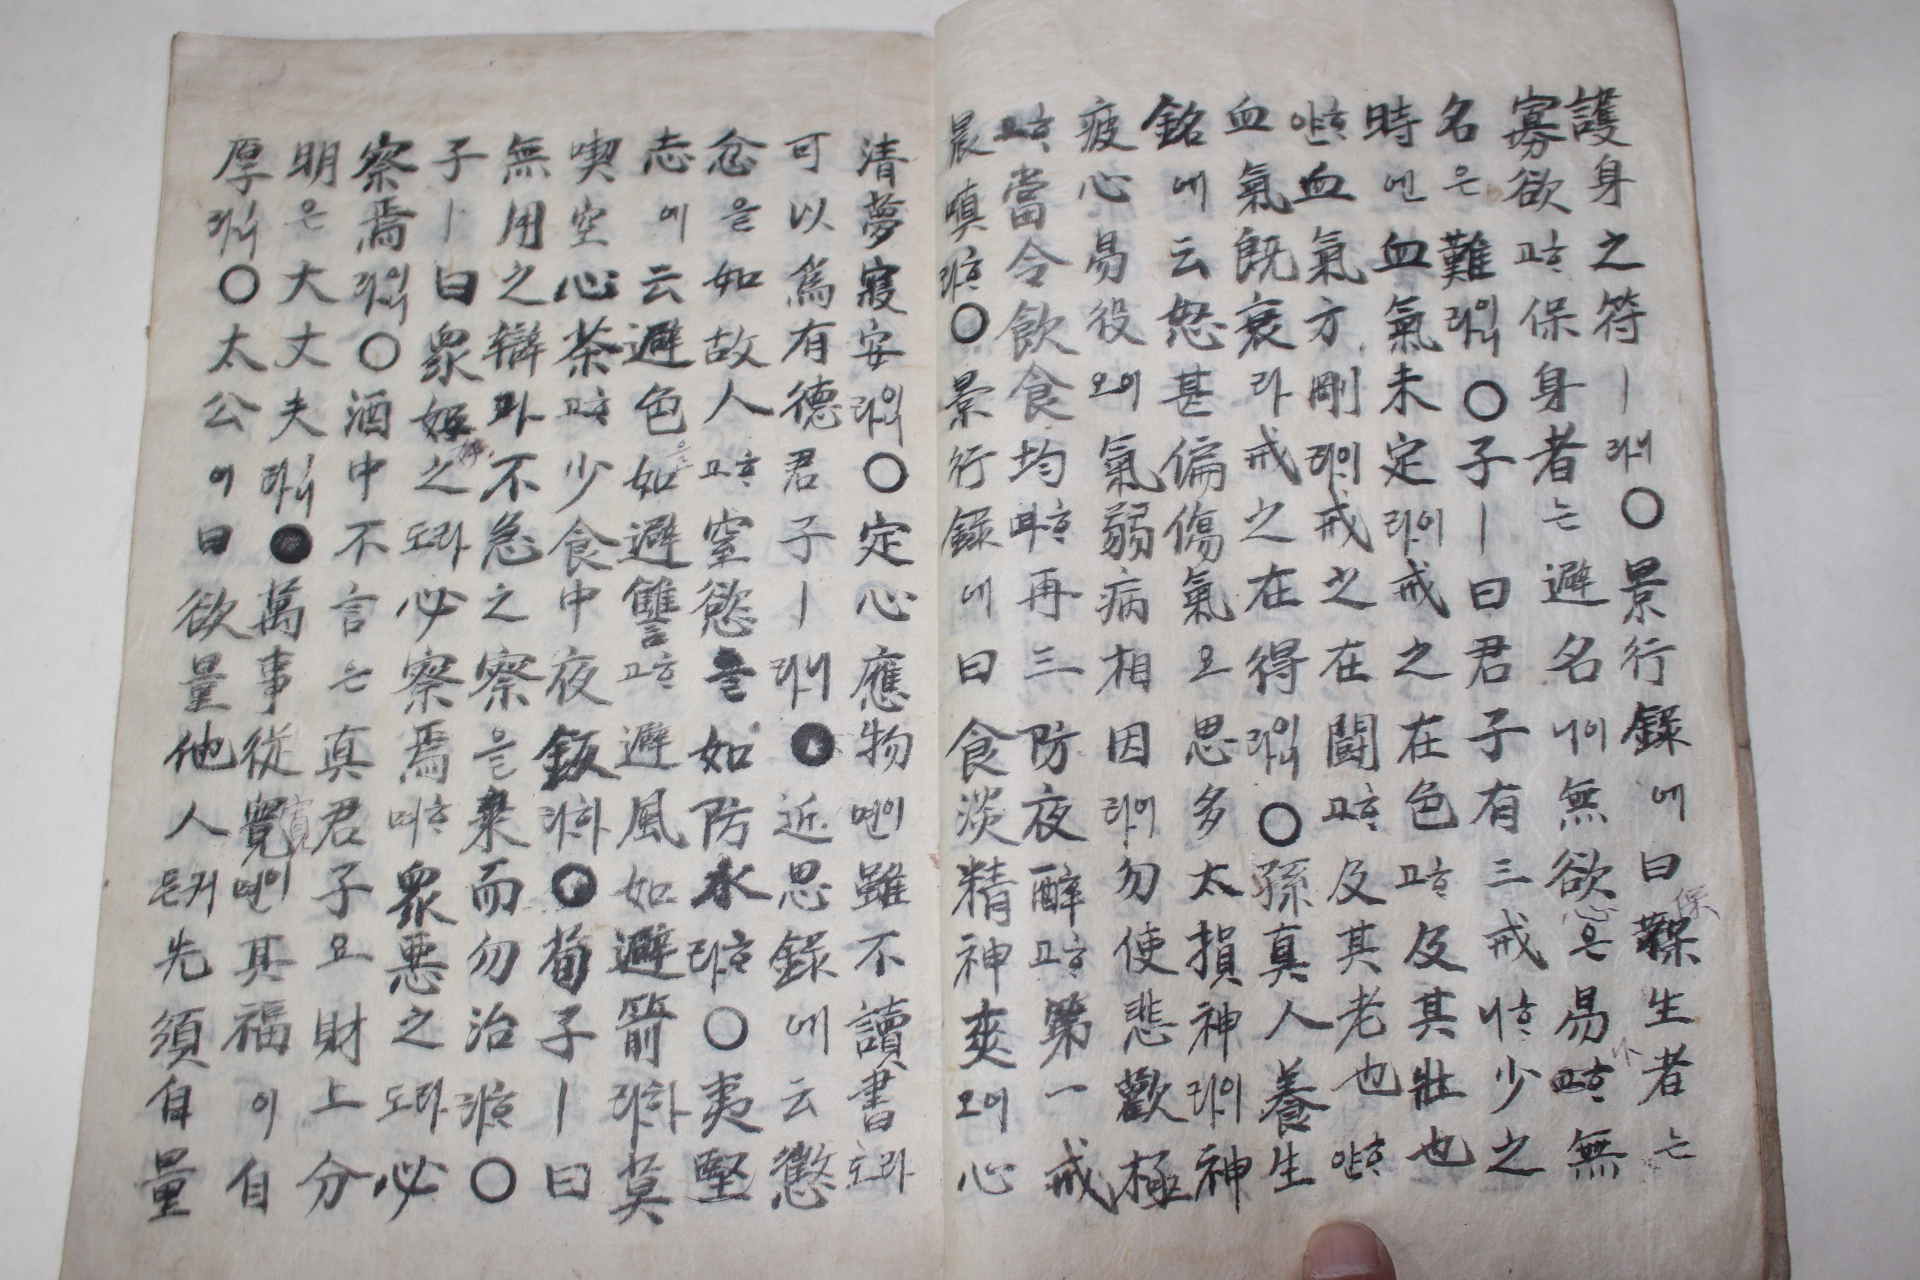 護身之符ㅣ라니○景行錄에曰保生者는
寡欲고保身者는避名니이無欲은易고無
名은難라이니○子ㅣ曰君子有三戒니少之
時엔血氣未定라이戒之在色고及其壯也
얀血氣方剛라이戒之在鬪고及其老也얀
血氣旣衰라戒之在得라이니○孫真人養生
銘에云怒甚偏傷氣오思多太損神라이神
疲心易役오이氣弱病相因라이勿使悲歡極
고當令飲食均며再三防夜醉고第一戒
晨嗔라○景行錄에曰食淡精神爽오이心
清夢寢安라이○定心應物면이雖不讀書도라
可以爲有德君子ㅣ라니●近思錄에云懲
忿을如故人고窒慾을如防水라○夷堅
志에云避色如避讐고避風如避箭라하莫
喫空心茶고少食中夜飯라하●荀子ㅣ曰
無用之辯과不急之察을棄而勿治라○
子ㅣ曰衆好之도라必察焉며衆惡之도라必
察焉라이니○酒中不言은真君子요財上分
明은大丈夫라니●萬事從寬면이其福이自
厚라니○太公이曰欲量他人은커先須自量